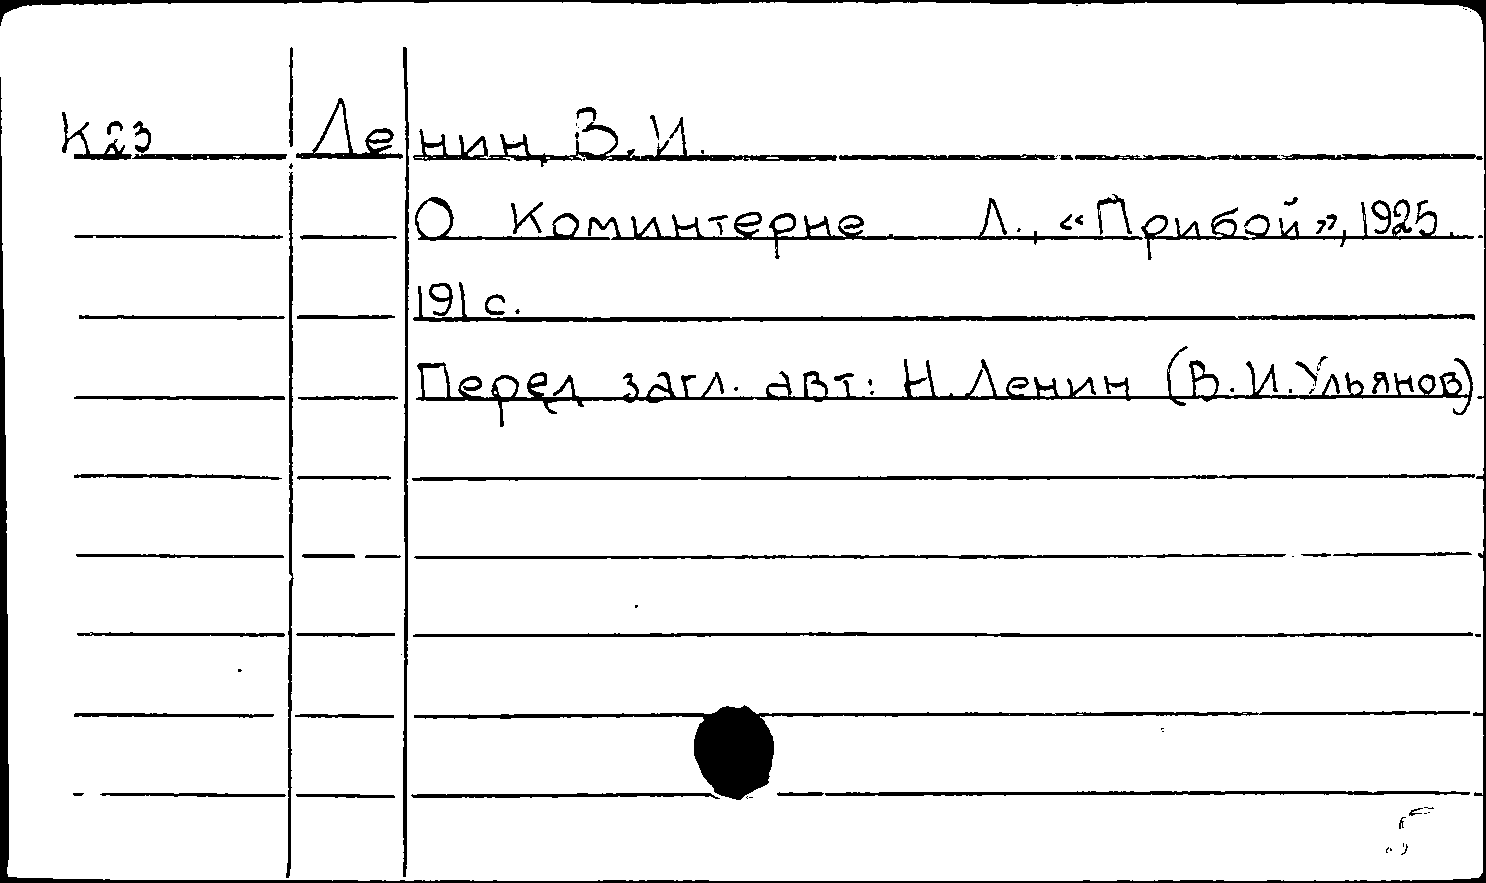 К23 Ленин, В.И.
О Коминтерне. Л., «Прибой», 1925.
191 с.
Перед загл. авт: Н.Ленин (В.И.Ульянов)